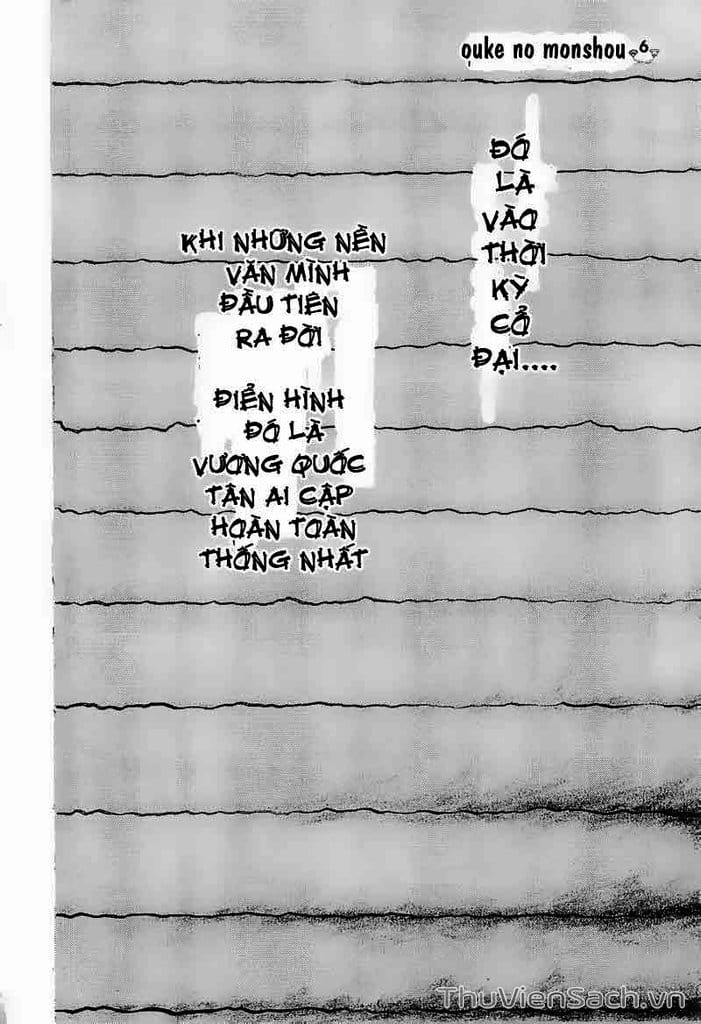 ouke no monshou 6
ĐÓ
LÀ
VÀO
THỜI
KỲ
CỔ
ĐẠI....
KHI NHỮNG NỀN
VĂN MINH
ĐẦU TIÊN
RA ĐỜI
ĐIỂN HÌNH
ĐÓ LÀ
VƯƠNG QUỐC
TÂN AI CẬP
HOÀN TOÀN
THỐNG NHẤT
ThuVienSach.vn